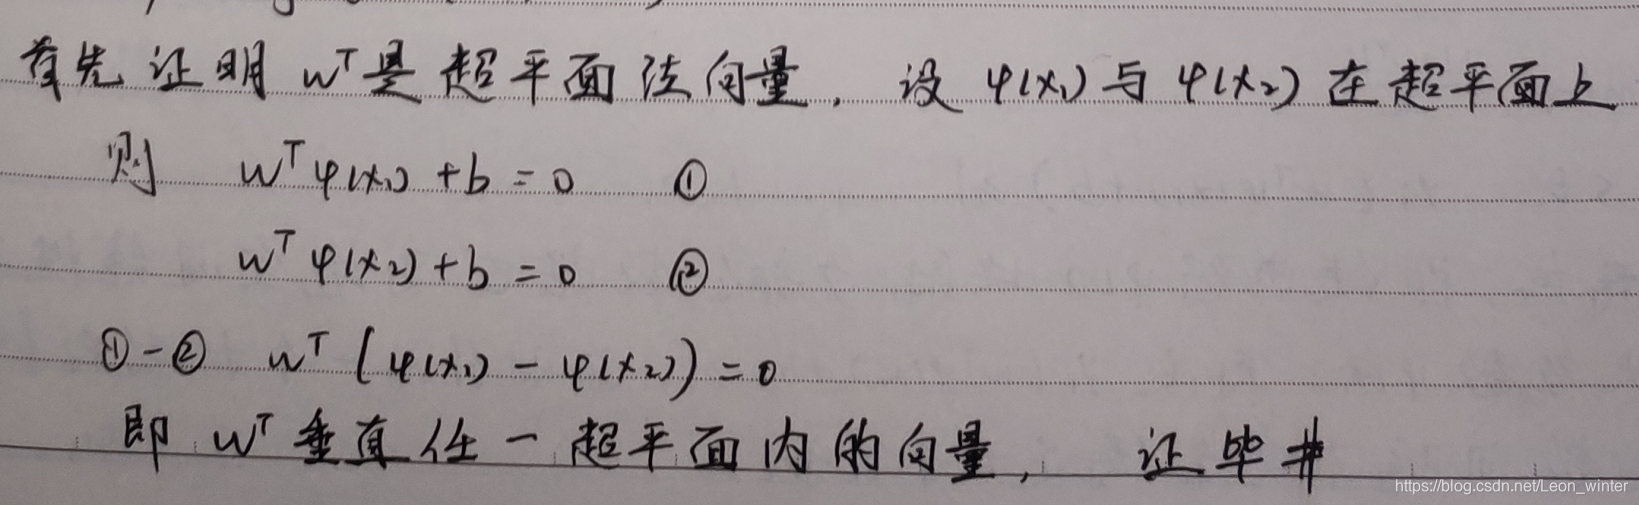 首先证明 wᵀ是超平面法向量，设 φ(x₁)与φ(x₂)在超平面上
则 wᵀφ(x₁)+b=0 ①
wᵀφ(x₂)+b=0 ②
①-② wᵀ(φ(x₁)-φ(x₂))=0
即 wᵀ垂直任一超平面内的向量， 证毕#
https://blog.csdn.net/Leon_winter